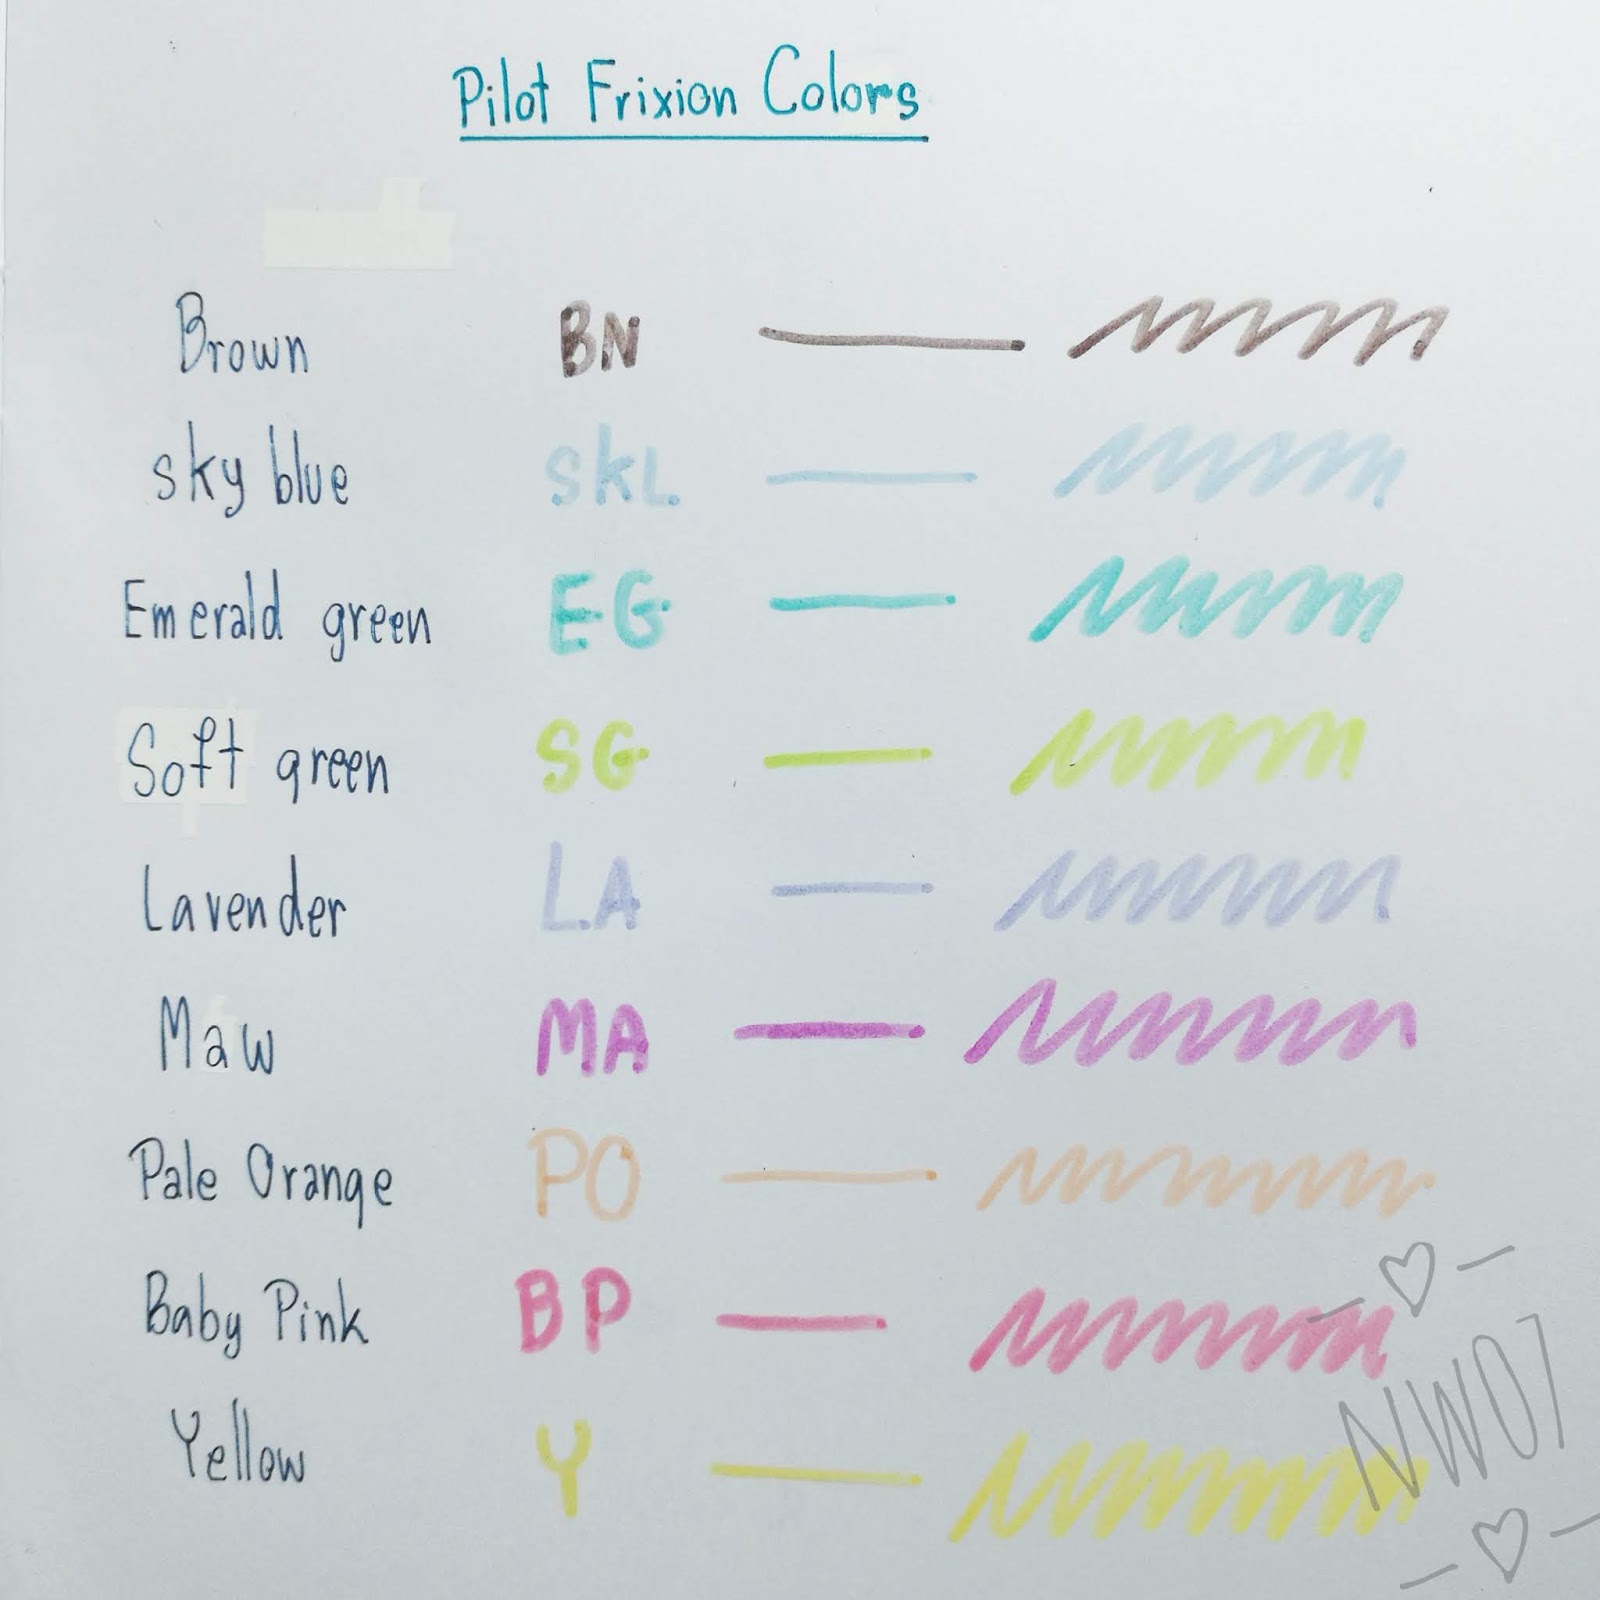 Pilot Frixion Colors
Brown BN
sky blue SKL
Emerald green EG
Soft green SG
Lavender LA
Maw MA
Pale Orange PO
Baby Pink BP
Yellow Y
NW07